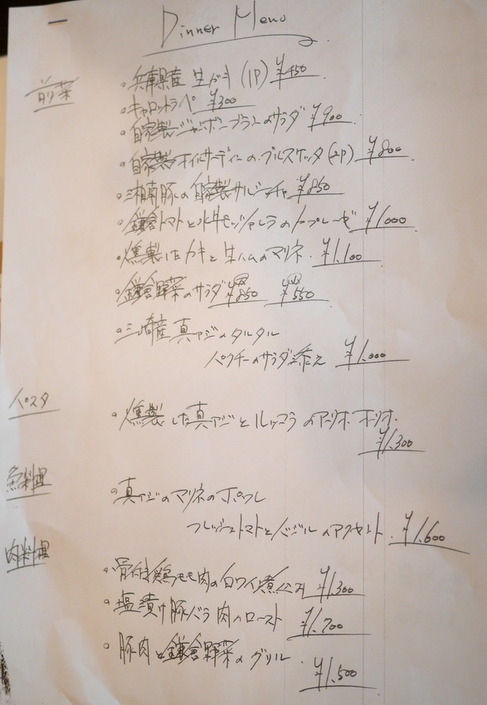 Dinner Menu
前菜
・兵庫県産 生ガキ (1P) ¥450
・キャロットラペ ¥300
・自家製 のサラダ ¥900
・自家製オイルサーディンのブルスケッタ(2P) ¥800
・湘南豚の自家製サルシッチャ ¥850
・鎌倉トマトと水牛モッツァレラのカプレーゼ ¥1,000
・燻製したカキと生ハムのマリネ ¥1,100
・鎌倉野菜のサラダ ¥850 ¥550
・三崎産真アジのタルタル
パクチーのサラダ添え ¥1,000
パスタ
・燻製した真アジとルッコラのアーリオ オーリオ
¥1,300
魚料理
・真アジのマリネのポワレ
フレッシュトマトとバジルのアクセント ¥1,600
肉料理
・骨付鶏モモ肉の白ワイン煮込み ¥1,300
・塩漬け豚バラ肉のロースト ¥1,700
・豚肉と鎌倉野菜のグリル
¥1,500